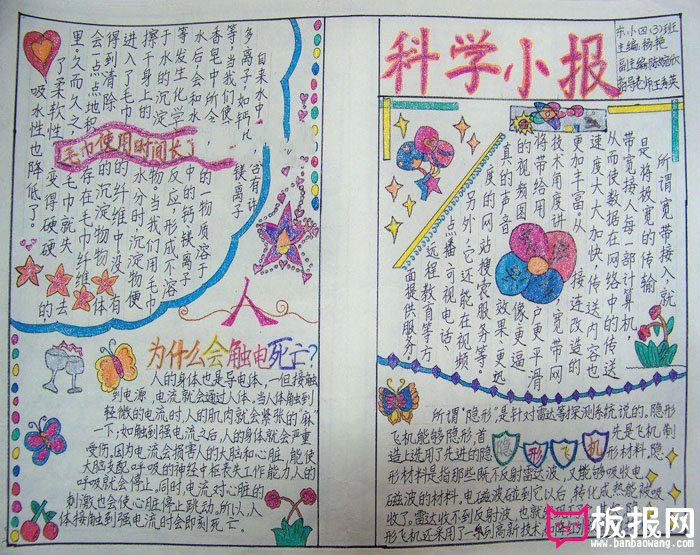 科学小报
东小四(3)班
主编:杨艳
自来水中
含有许
多离子,如钙
镁离子
等,当我们使
香皂中所含
的物质溶于
水后会和水
中的钙镁离子
等发生化学
反应,形成不溶
于水的沉淀
物。当我们用毛巾
擦干身上的
水分时,沉淀物便
进入了毛巾
的纤维中,没有
得到清除
的沉淀物物体
会一点点地积
存在毛巾纤维
里,久而久之,
毛巾就失去
了柔软性
变得硬硬
吸水性也降低了。
毛巾使用时间长了
为什么会触电死亡?
人的身体也是导电体,一但接触
到电源,电流就会通过人体。当人体触到
轻微的电流时,人的肌肉就会紧张的“麻”
一下;如触到强电流之后,人的身体就会严重
受伤,因为电流会损害人的大脑和心脏,能使
大脑支配呼吸的神经中枢丧失工作能力,人的
呼吸就会停止,同时,电流对心脏的
刺激也会使心脏停止跳动。所以,人
体接触到强电流时会即刻死亡。
所谓宽带接入,就
是将极宽的传输
带宽接入每一部计算机,
从而使数据在网络中的传送
速度大大加快,传送内容也
更加丰富。从
接连改造的
技术角度讲
宽带网
将带给用
户更平滑
的视频图
像、更逼
真的声音
效果、更迅
度的网站搜索服务等
另外,它还能在视频
点播、可视电话、
远程教育等方
面提供服务。
隐形飞机
所谓“隐形”,是针对雷达等探测系统说的。隐形
飞机能够隐形,首先是飞机制
造上选用了先进的隐
形材料是指那些既不反射雷达波,又能够吸收电
磁波的材料。电磁波碰到它以后,转化成热能被吸
收了。雷达收不到反射波,也就
形飞机还采用了一系列高新技术,
板报网
www.banbaowang.com